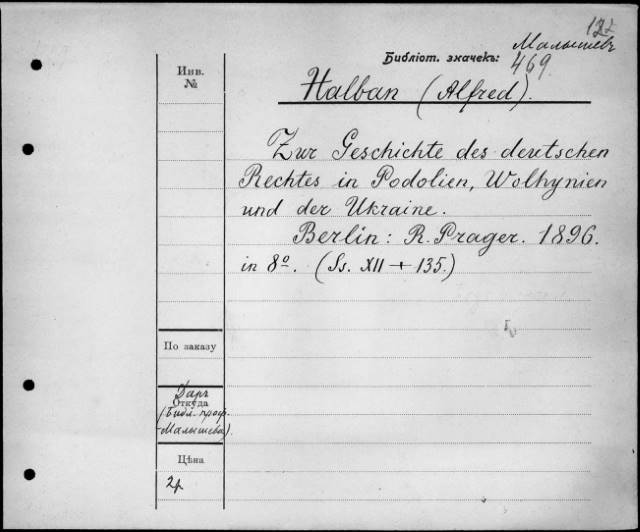 122
Библіот. значекъ: Малышевъ
469
Инв.
№
Halban (Alfred).
Zur Geschichte des deutschen
Rechtes in Podolien, Wolhynien
und der Ukraine.
Berlin: R. Prager. 1896.
in 8º. (Ss. XII + 135.)
По заказу
Даръ
Откуда
(Библ. проф.
Малышева).
Цѣна
2р